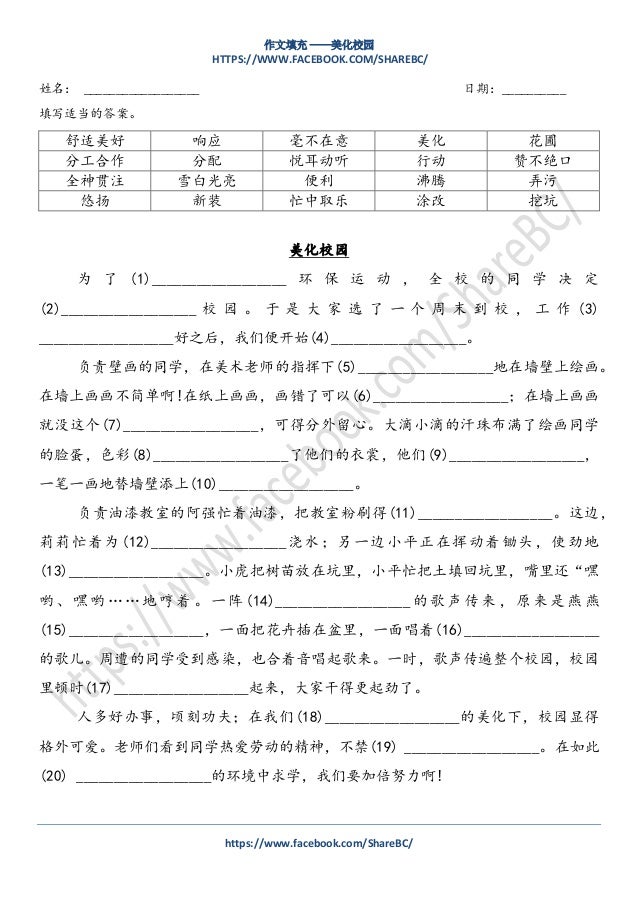 作文填充 ——美化校园
HTTPS://WWW.FACEBOOK.COM/SHAREBC/
姓名： __________________ 日期：__________
填写适当的答案。
舒适美好 响应 毫不在意 美化 花圃
分工合作 分配 悦耳动听 行动 赞不绝口
全神贯注 雪白光亮 便利 沸腾 弄污
悠扬 新装 忙中取乐 涂改 挖坑
美化校园
为了(1)__________________环保运动，全校的同学决定
(2)__________________校园。于是大家选了一个周末到校，工作(3)
__________________好之后，我们便开始(4)__________________。
负责壁画的同学，在美术老师的指挥下(5)__________________地在墙壁上绘画。
在墙上画画不简单啊!在纸上画画，画错了可以(6)__________________；在墙上画画
就没这个(7)__________________，可得分外留心。大滴小滴的汗珠布满了绘画同学
的脸蛋，色彩(8)__________________了他们的衣裳，他们(9)__________________，
一笔一画地替墙壁添上(10)__________________。
负责油漆教室的阿强忙着油漆，把教室粉刷得(11)__________________。这边，
莉莉忙着为(12)__________________浇水；另一边小平正在挥动着锄头，使劲地
(13)__________________。小虎把树苗放在坑里，小平忙把土填回坑里，嘴里还“嘿
哟、嘿哟……地哼着。一阵(14)__________________的歌声传来，原来是燕燕
(15)__________________，一面把花卉插在盆里，一面唱着(16)__________________
的歌儿。周遭的同学受到感染，也合着音唱起歌来。一时，歌声传遍整个校园，校园
里顿时(17)__________________起来，大家干得更起劲了。
人多好办事，顷刻功夫；在我们(18)__________________的美化下，校园显得
格外可爱。老师们看到同学热爱劳动的精神，不禁(19) __________________。在如此
(20) __________________的环境中求学，我们要加倍努力啊!
https://www.facebook.com/ShareBC/
https://www.facebook.com/ShareBC/